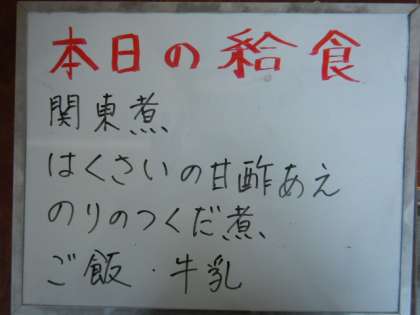 本日の給食
関東煮
はくさいの甘酢あえ
のりのつくだ煮
ご飯・牛乳